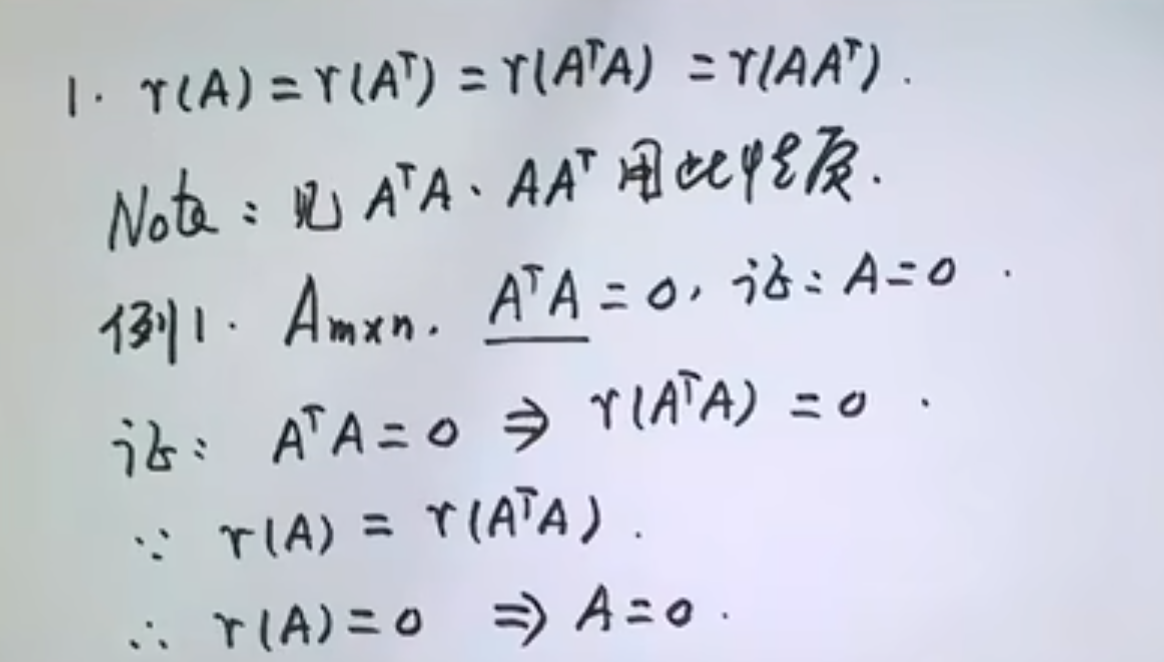 1. r(A)=r(Aᵀ)=r(AᵀA)=r(AAᵀ).
Note：见 AᵀA、AAᵀ 用此性质.
例1. Aₘₓₙ. AᵀA=0，证：A=0.
证：AᵀA=0 ⇒ r(AᵀA)=0.
∵ r(A)=r(AᵀA).
∴ r(A)=0 ⇒ A=0.